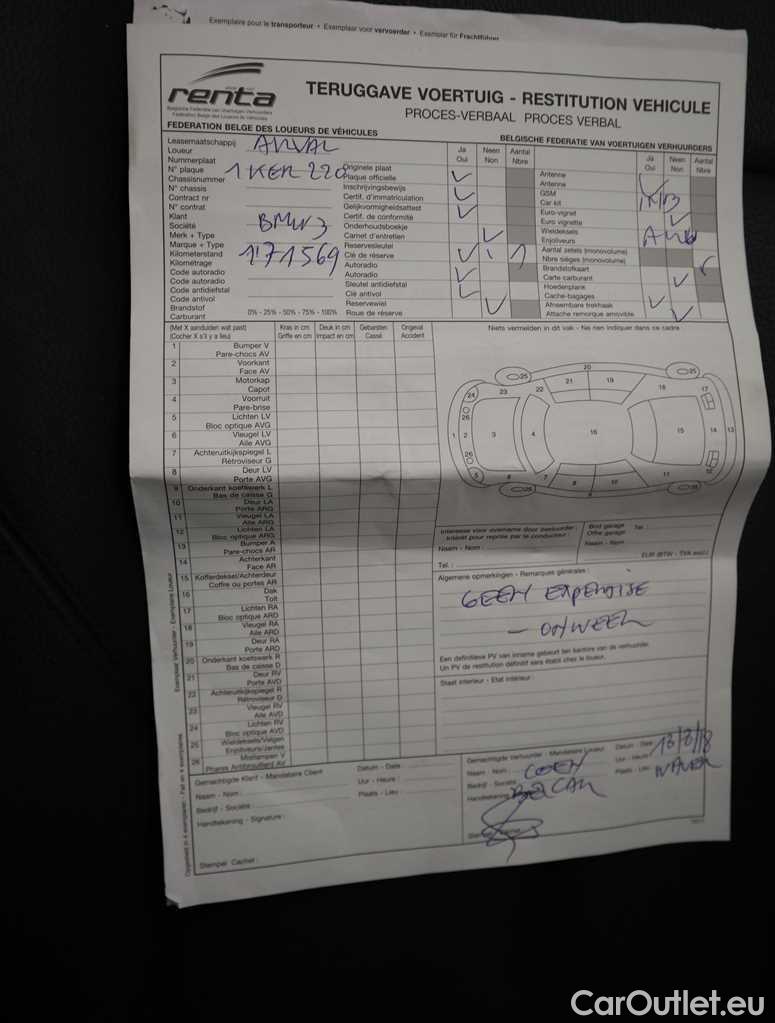 Exemplaire pour le transporteur • Exemplaar voor vervoerder • Exemplar für Frachtführer
renta
Belgische Federatie van Voertuigen Verhuurders
Fédération Belge des Loueurs de Véhicules
TERUGGAVE VOERTUIG - RESTITUTION VEHICULE
PROCES-VERBAAL PROCES VERBAL
FEDERATION BELGE DES LOUEURS DE VÉHICULES
BELGISCHE FEDERATIE VAN VOERTUIGEN VERHUURDERS
Leasemaatschappij
Loueur
ARVAL
Nummerplaat
N° plaque
1 KER 220
Chassisnummer
N° chassis
Contract nr
N° contrat
Klant
Société
Merk + Type
Marque + Type
BMW 3
Kilometerstand
Kilométrage
171569
Code autoradio
Code autoradio
Code antidiefstal
Code antivol
Brandstof
Carburant
0% - 25% - 50% - 75% - 100%
Ja
Oui
Neen
Non
Aantal
Nbre
Originele plaat
Plaque officielle
Inschrijvingsbewijs
Certif. d'immatriculation
Gelijkvormigheidsattest
Certif. de conformité
Onderhoudsboekje
Carnet d'entretien
Reservesleutel
Clé de réserve
1
Autoradio
Autoradio
Sleutel antidiefstal
Clé antivol
Reservewiel
Roue de réserve
Ja
Oui
Neen
Non
Aantal
Nbre
Antenne
Antenne
GSM
Car kit
Euro-vignet
Euro vignette
Wieldeksels
Enjoliveurs
Aantal zetels (monovolume)
Nbre sièges (monovolume)
Brandstofkaart
Carte carburant
Hoedenplank
Cache-bagages
Afneembare trekhaak
Attache remorque amovible
(Met X aanduiden wat past)
(Cocher X s'il y a lieu)
Kras in cm
Griffe en cm
Deuk in cm
Impact en cm
Gebarsten
Cassé
Ongeval
Accident
Niets vermelden in dit vak - Ne rien indiquer dans ce cadre
1 Bumper V
Pare-chocs AV
2 Voorkant
Face AV
3 Motorkap
Capot
4 Voorruit
Pare-brise
5 Lichten LV
Bloc optique AVG
6 Vleugel LV
Aile AVG
7 Achteruitkijkspiegel L
Rétroviseur G
8 Deur LV
Porte AVG
9 Onderkant koetswerk L
Bas de caisse G
10 Deur LA
Porte ARG
11 Vleugel LA
Aile ARG
12 Lichten LA
Bloc optique ARG
13 Bumper A
Pare-chocs AR
14 Achterkant
Face AR
15 Kofferdeksel/Achterdeur
Coffre ou portes AR
16 Dak
Toit
17 Lichten RA
Bloc optique ARD
18 Vleugel RA
Aile ARD
19 Deur RA
Porte ARD
20 Onderkant koetswerk R
Bas de caisse D
21 Deur RV
Porte AVD
22 Achteruitkijkspiegel R
Rétroviseur D
23 Vleugel RV
Aile AVD
24 Lichten RV
Bloc optique AVD
25 Wieldeksels/Velgen
Enjoliveurs/Jantes
26 Mistlampen V
Phares Antibrouillard AV
Interesse voor overname door bestuurder :
Intérêt pour reprise par le conducteur :
Naam - Nom :
Tel. :
Bod garage
Offre garage
Tel :
Naam - Nom :
EUR (BTW - TVA excl.)
Algemene opmerkingen - Remarques générales :
GEEN EXPERTISE
- ONWEER
Een definitieve PV van inname gebeurt ten kantore van de verhuurder.
Un PV de restitution définitif sera établi chez le loueur.
Staat interieur - Etat intérieur :
Gemachtigde Klant - Mandataire Client
Naam - Nom :
Bedrijf - Société :
Handtekening - Signature :
Stempel Cachet :
Datum - Date :
Uur - Heure :
Plaats - Lieu :
Gemachtigde Verhuurder - Mandataire Loueur
Naam - Nom :
Bedrijf - Société :
Handtekening
BELCAR
Datum - Date :
Uur - Heure :
Plaats - Lieu :
WAVER
Exemplaar Verhuurder - Exemplaire Loueur
Opgesteld in 4 exemplaren - Fait en 4 exemplaires
CarOutlet.eu